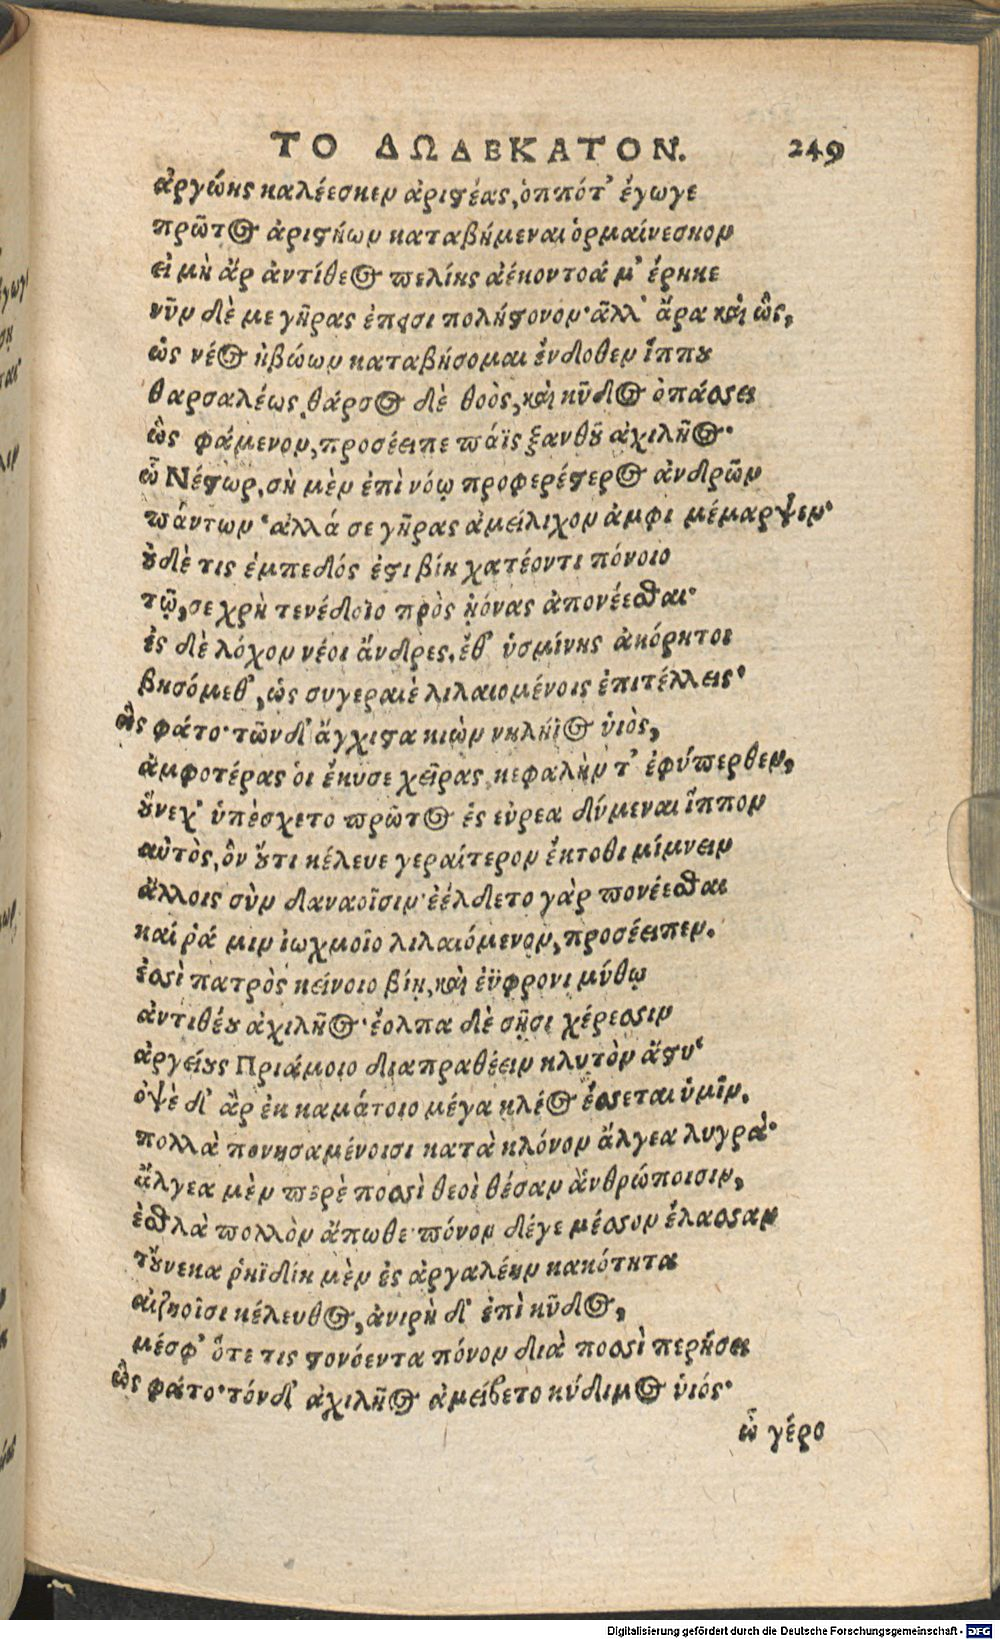 ΤΟ ΔΩΔΕΚΑΤΟΝ. 249
ἀργώης καλέεσκεν ἀριστέας, ὁππότ' ἔγωγε
πρῶτος ἀριστήων καταβήμεναι ὁρμαίνεσκον
εἰ μὴ ἂρ ἀντίθεος πελίης ἀέκοντά μ' ἔρηκε
νῦν δὲ με γῆρας ἔπεισι πολήστονον· ἀλλ' ἄρα καὶ ὣς,
ὡς νέος ἡβώων καταβήσομαι ἔνδοθεν ἵππου
θαρσαλέως, θάρσος δὲ θοὸς, καὶ κῦδος ὀπάσσει
ὣς φάμενον, προσέειπε πάϊς ξανθοῦ ἀχιλῆος·
ὦ Νέστωρ, σὴ μὲν ἐπὶ νόῳ προφερέστερος ἀνδρῶν
πάντων· ἀλλά σε γῆρας ἀμείλιχον ἀμφι μέμαρψεν·
οὐδὲ τις ἐμπεδός ἐστι βίη χατέοντι πόνοιο
τῷ, σε χρὴ τενέδοιο πρὸς ᾐόνας ἀπονέεσθαι·
ἐς δὲ λόχον νέοι ἄνδρες, ἔθ' ὑσμίνης ἀκόρητοι
βησόμεθ', ὡς συγεραιὲ λιλαιομένοις ἐπιτέλλεις·
ὣς φάτο· τῶν δ' ἄγχιστα κιὼν νηλήϊος ὑιὸς,
ἀμφοτέρας ὁι ἔκυσε χεῖρας, κεφαλὴν τ' ἐφύπερθεν,
οὕνεχ' ὑπὲσχετο πρῶτος ἐς εὐρεα δύμεναι ἵππον
αὐτὸς, ὃν οὔτι κέλευε γεραίτερον ἔκτοθι μίμνειν
ἄλλοις σὺν δαναοῖσιν· ἐέλδετο γὰρ πονέεσθαι
καί ῥά μιν ἰωχμοῖο λιλαιόμενον, προσέειπεν.
ἐσσὶ πατρὸς κείνοιο βίῃ, καὶ ἐΰφρονι μύθῳ
ἀντιθέου ἀχιλῆος· ἔολπα δὲ σῇσι χέρεσσιν
ἀργείους Πριάμοιο διαπραθέειν κλυτὸν ἄστυ·
ὀψὲ δ' ἂρ ἐκ καμάτοιο μέγα κλέος ἔσσεται ὑμῖν.
πολλὰ πονησαμένοισι κατὰ κλόνον ἄλγεα λυγρά·
ἄλγεα μὲν περὲ ποσσὶ θεοὶ θέσαν ἀνθρώποισιν,
ἐσθλὰ πολλὸν ἄπωθε· πόνον δέγε μέσσον ἔλασσαν
τοὔνεκα ῥηϊδίη μὲν ἐς ἀργαλέην κακότητα
αἰζηοῖσι κέλευθος, ἀνιρὴ δ' ἐπὶ κῦδος,
μέσφ' ὅτε τις στονόεντα πόνον διὰ ποσσὶ περήσει
ὣς φάτο· τόν δ' ἀχιλῆος ἀμείβετο κύδιμος ὑιός·
ὦ γέρο
Digitalisierung gefördert durch die Deutsche Forschungsgemeinschaft - DFG